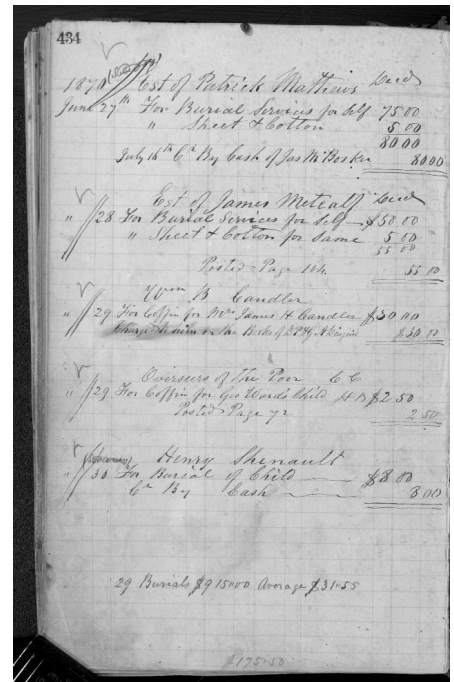 434
1870 Est of Patrick Mathews Decd
June 27th For Burial Services for Self 75 00
" Sheet & Cotton 5 00
80 00
July 16th Cr By Cash of Jas McBosker 80 00
Est of James Metcalf Decd
" 28 For Burial Services for Self $50 00
" Sheet & Cotton for Same 5 00
55 00
Posted Page 164 55 00
Wm B Candler
" 29 For Coffin for Mrs James H Candler $30.00
on the Books of $30 00
Overseers of The Poor C C
" 29 For Coffin for Geo Words Child H B $2 50
Posted Page 72 2 50
Henry Shinault
" 30 For Burial of Child $8.00
Cr By Cash 8 00
29 Burials $915=00 Average $31=55
$175=50